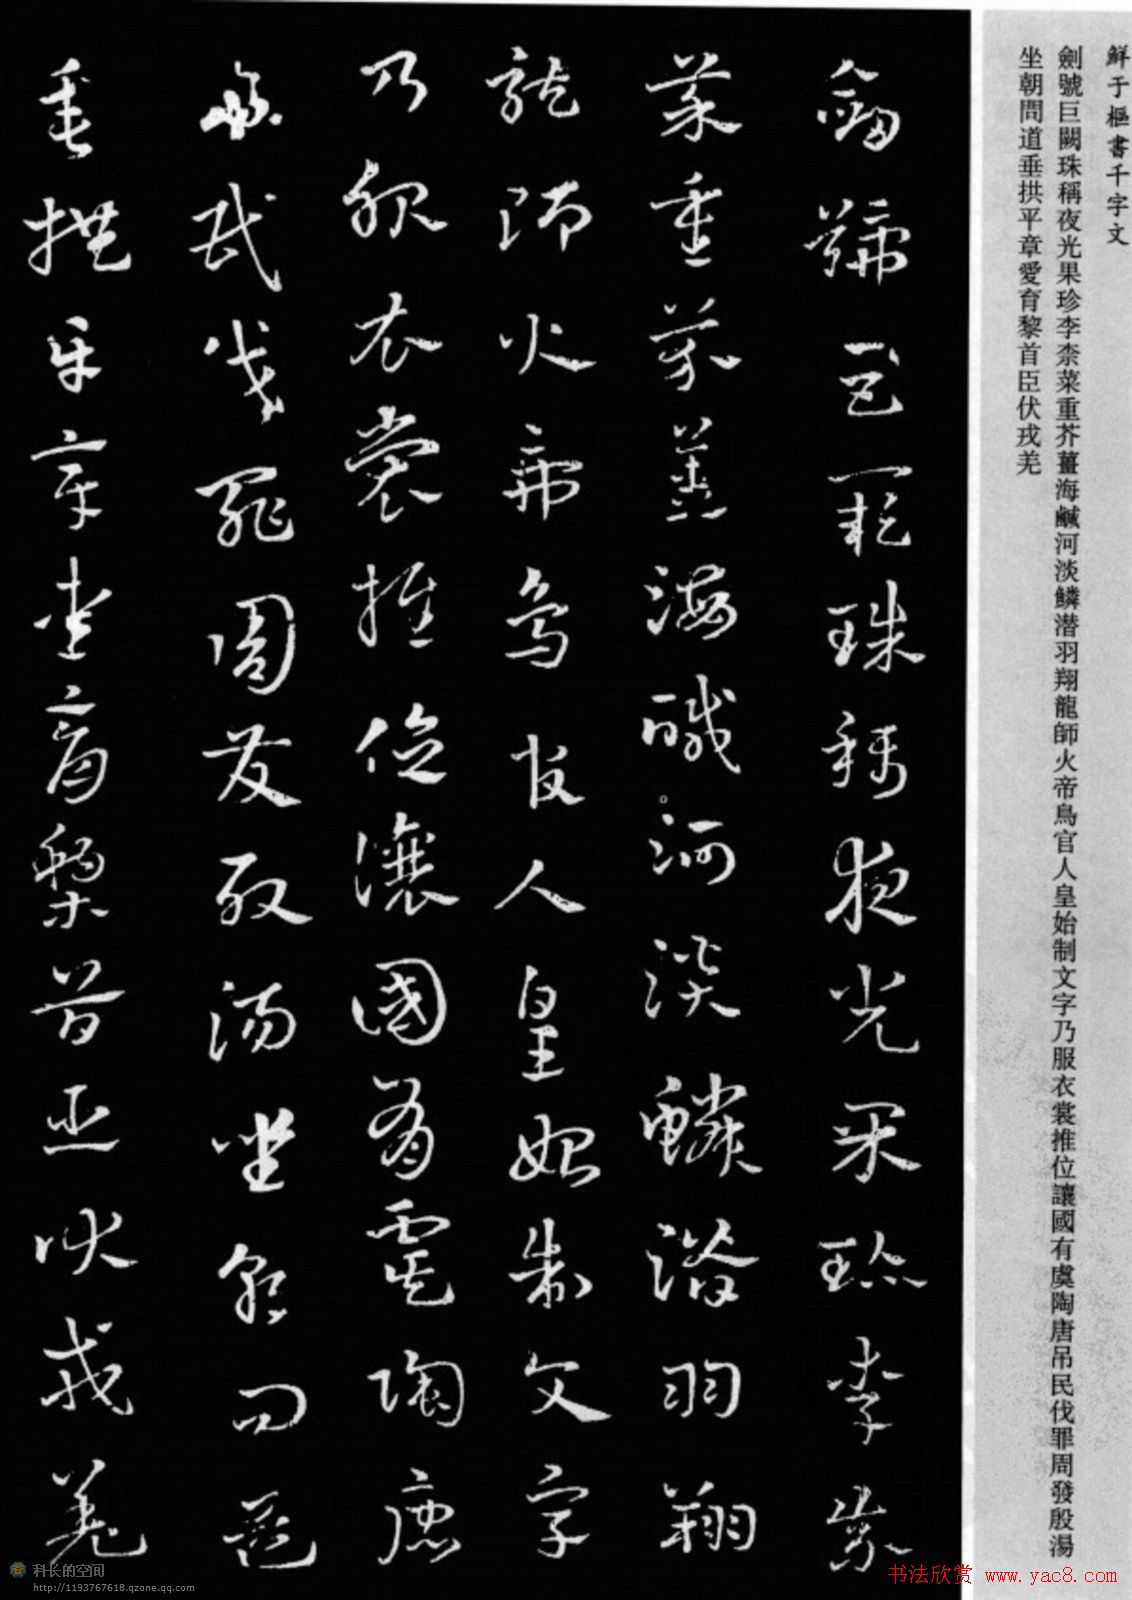 鮮于樞書千字文
劍號巨闕珠稱夜光果珍李柰菜重芥薑海鹹河淡鱗潛羽翔龍師火帝鳥官人皇始制文字乃服衣裳推位讓國有虞陶唐吊民伐罪周發殷湯
坐朝問道垂拱平章愛育黎首臣伏戎羌
劍號巨闕珠稱夜光果珍李柰
菜重芥薑海鹹河淡鱗潛羽翔
龍師火帝鳥官人皇始制文字
乃服衣裳推位讓國有虞陶唐
吊民伐罪周發殷湯坐朝問道
垂拱平章愛育黎首臣伏戎羌
科长的空间
http://1193767618.qzone.qq.com
书法欣赏 www.yac8.com